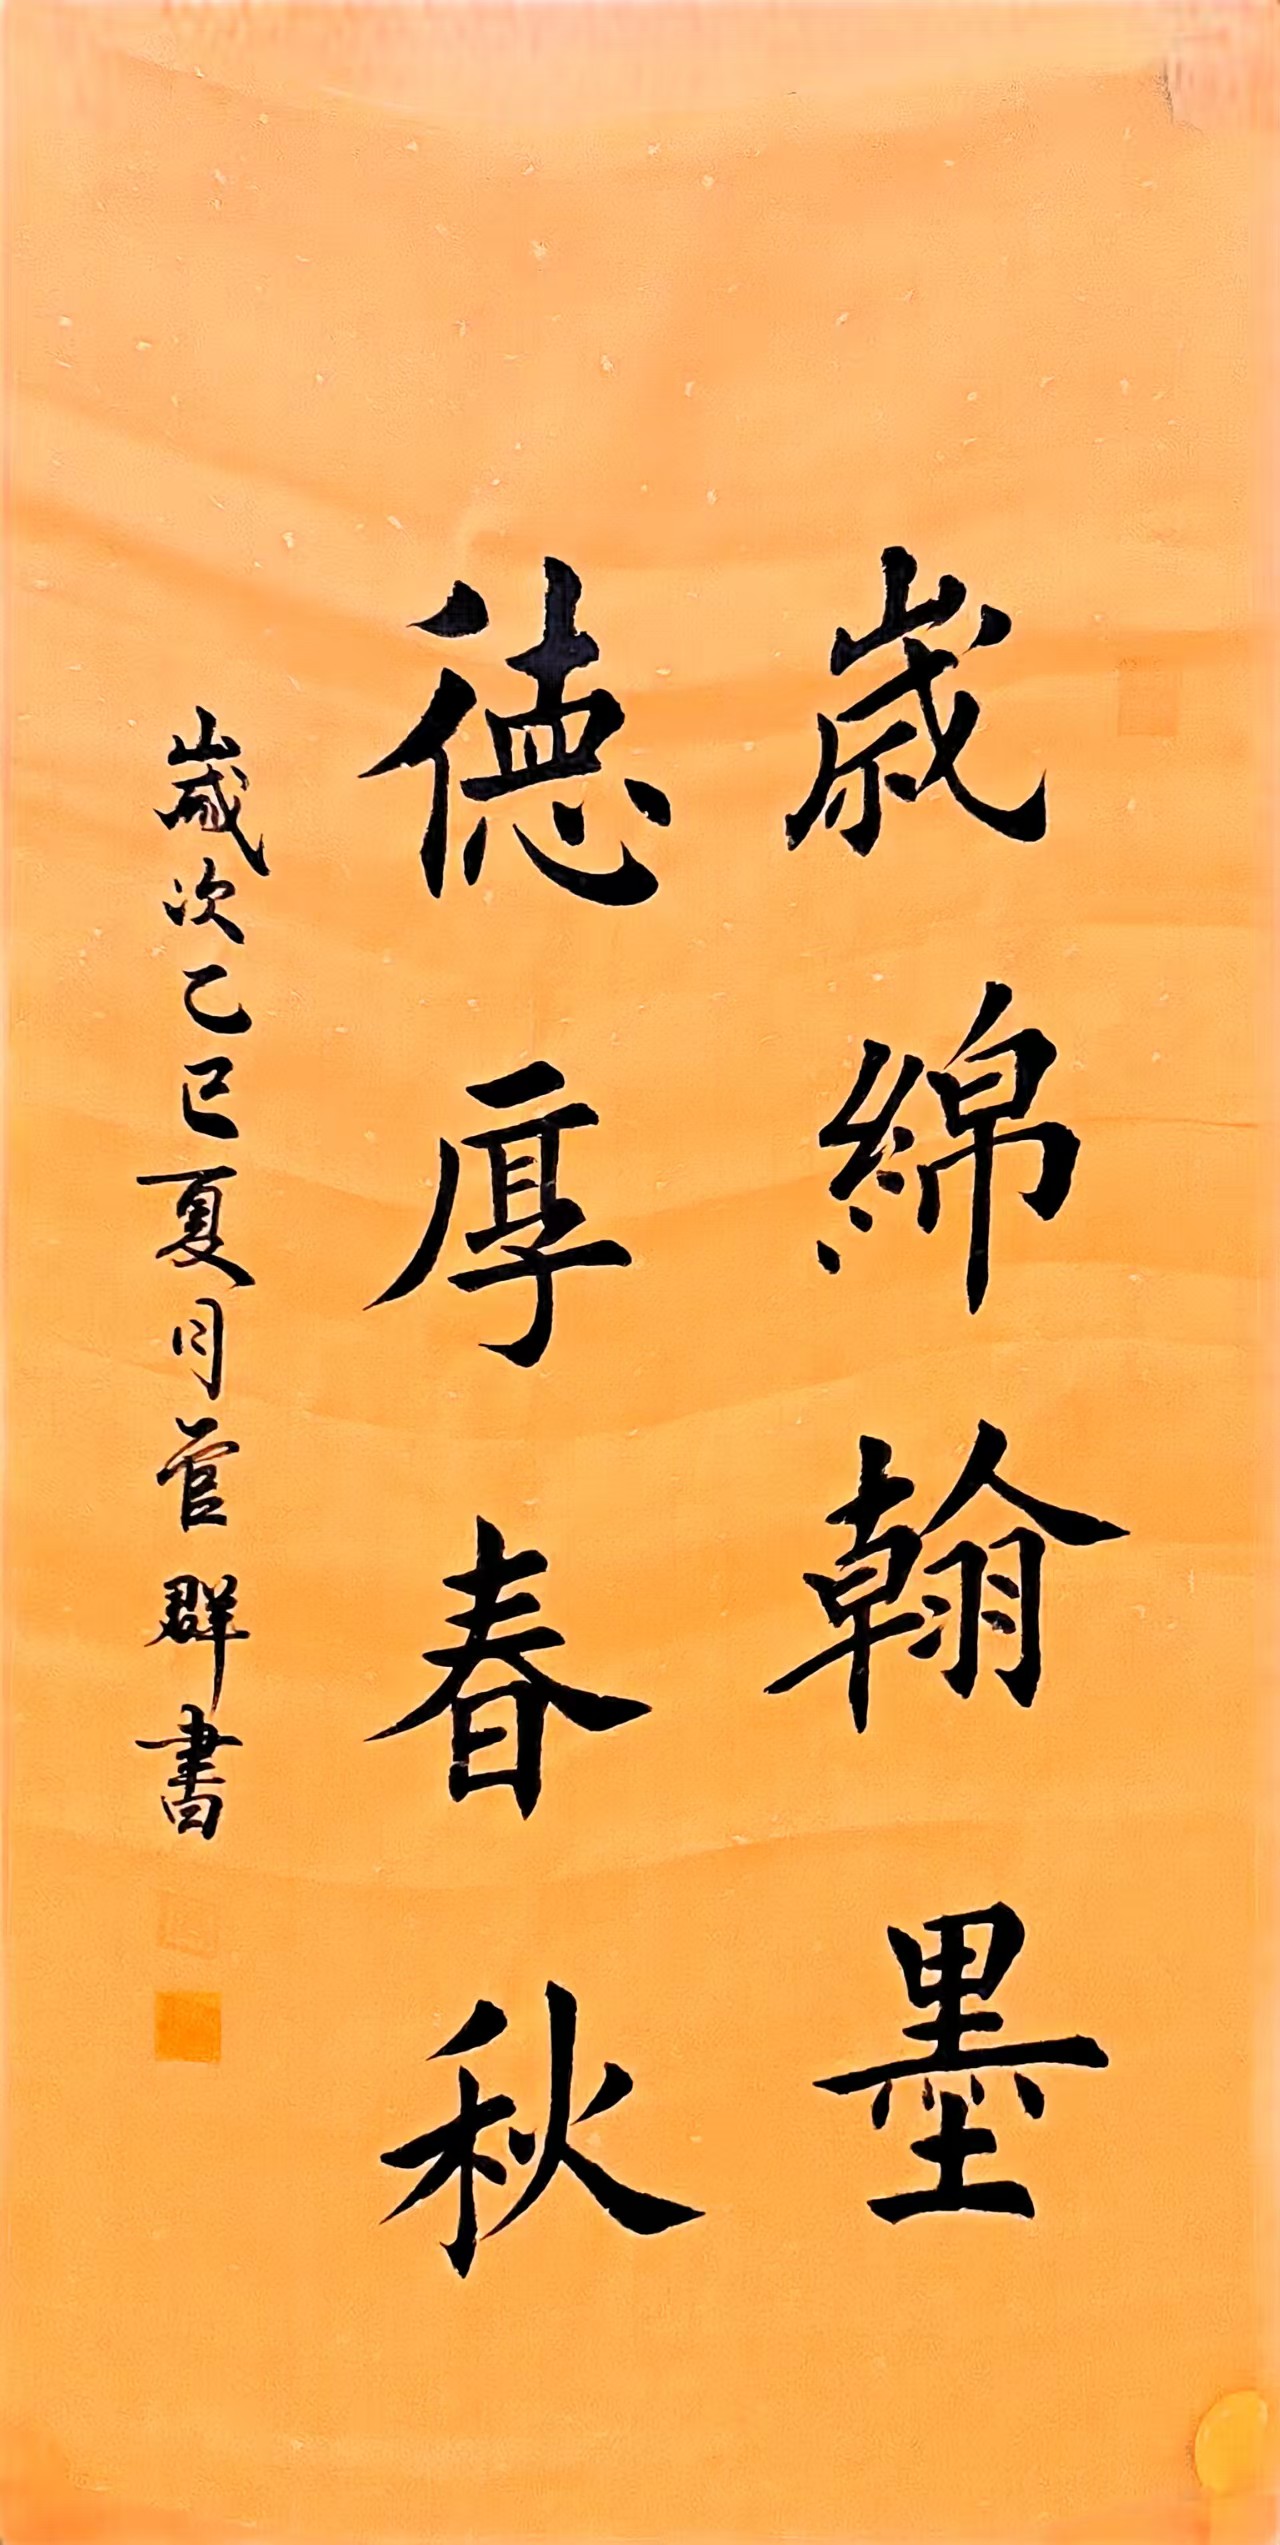 歳綿翰墨
德厚春秋
歲次乙巳夏月管群書